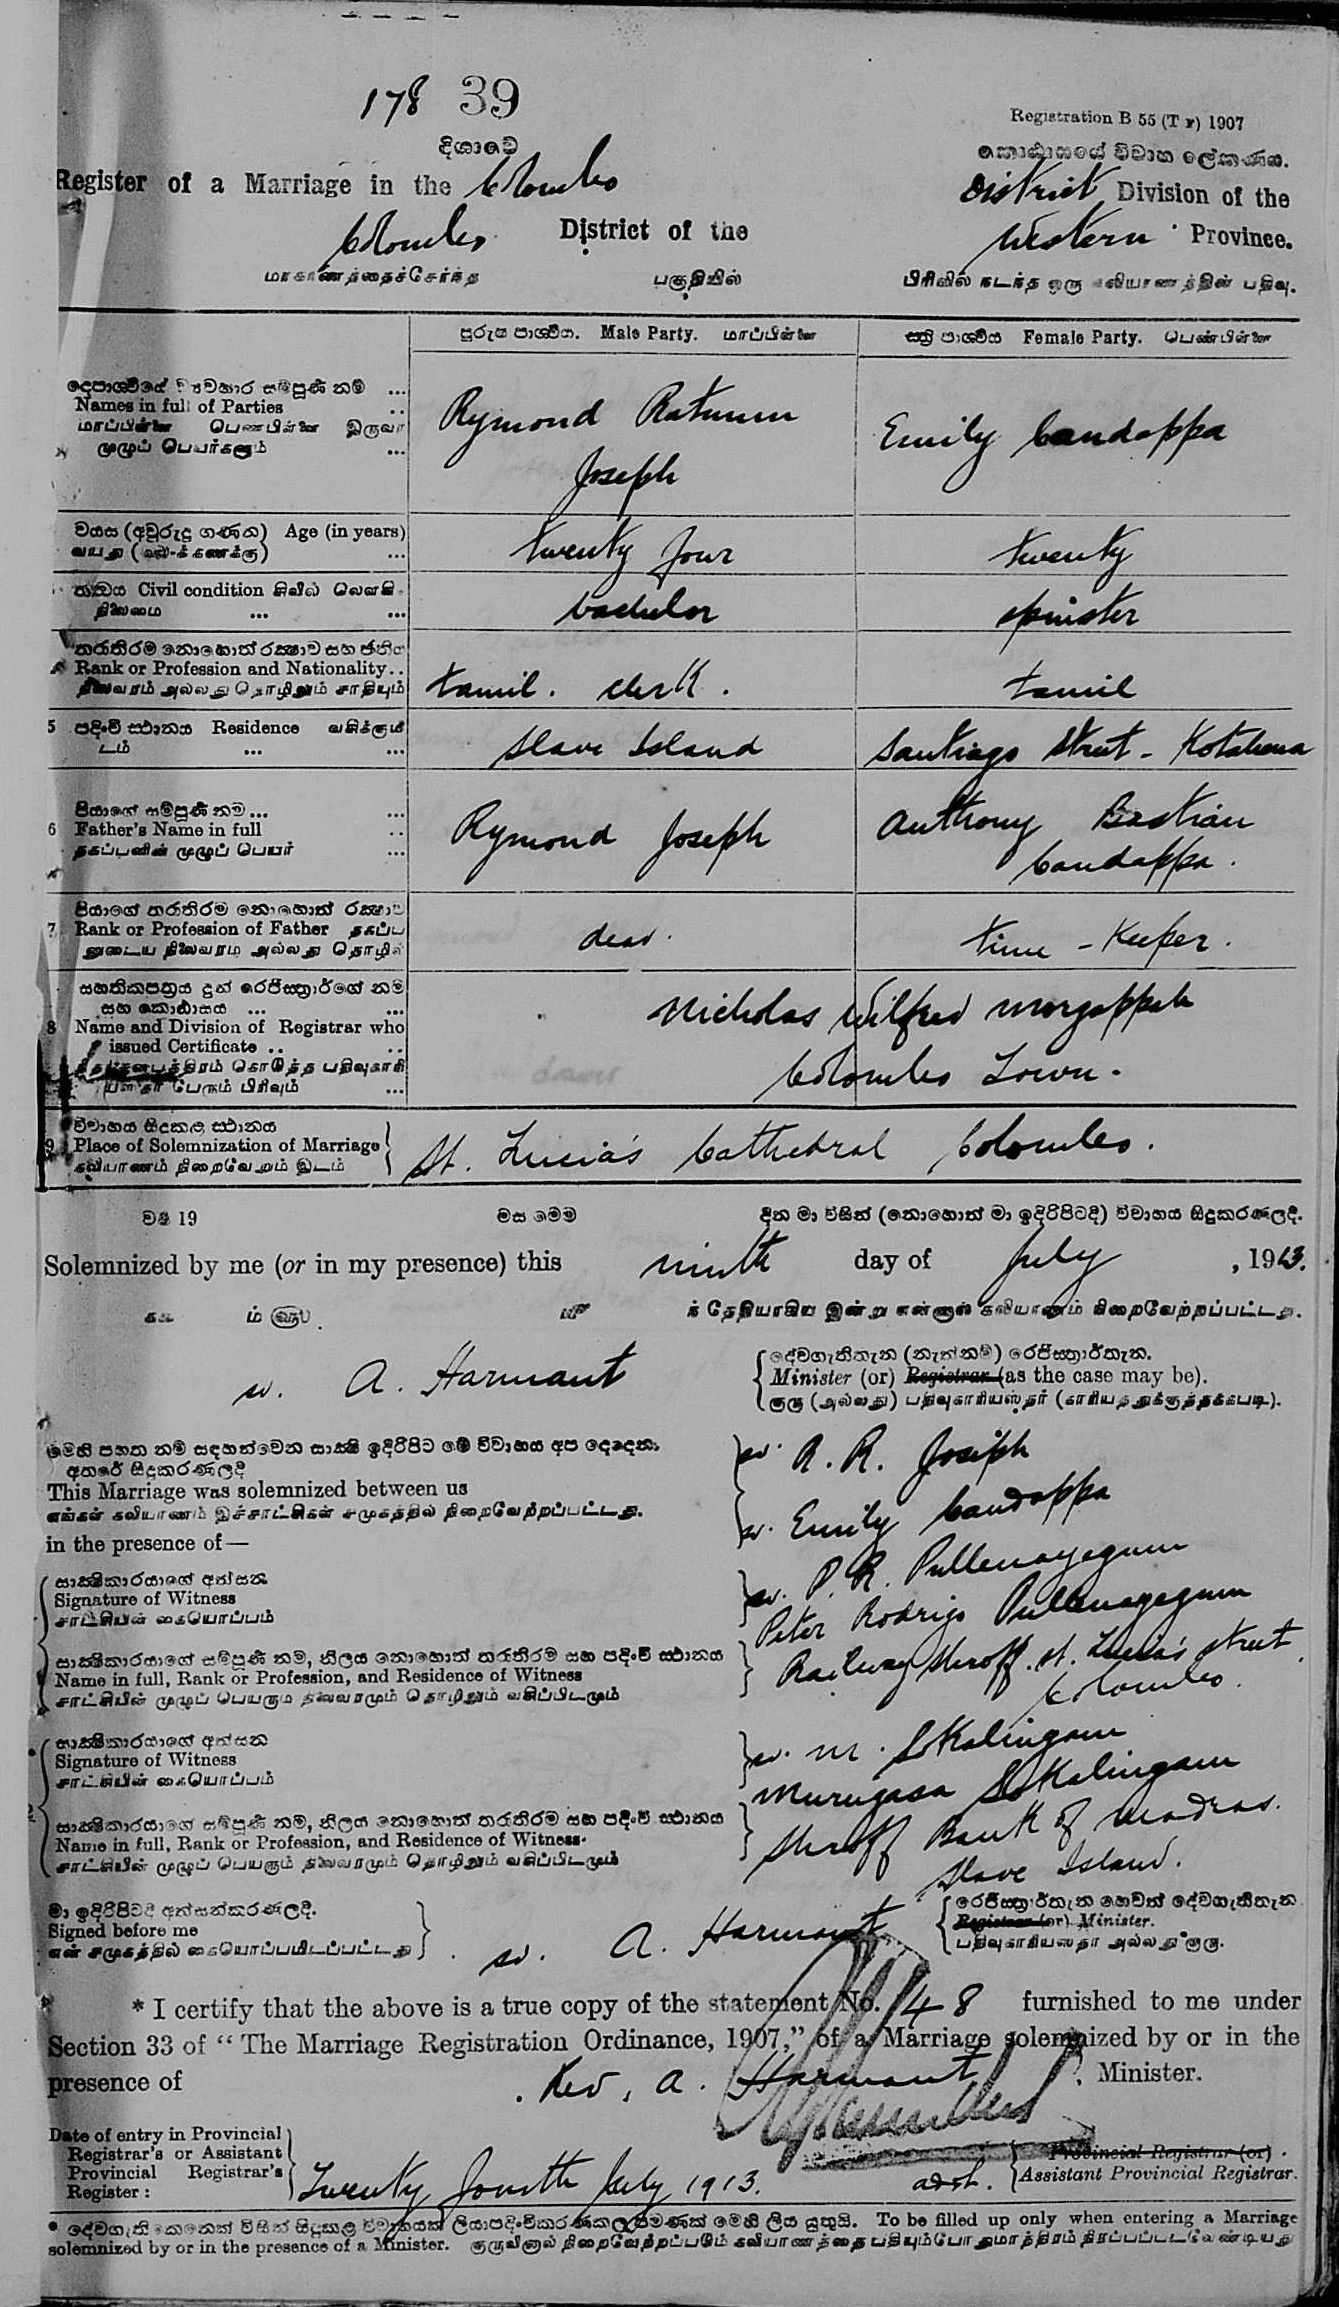 178 39
Registration B 55 (T r) 1907
දිශාවේ
කොට්ඨාසයේ විවාහ ලේකණය.
Register of a Marriage in the Colombo District Division of the
Colombo District of the Western Province.
மாகாணத்தைச்சேர்ந்த பகுதியில் பிரிவில் நடந்த ஒரு கலியாணத்தின் பதிவு.
පුරුෂ පාර්ශවීය. Male Party. மாப்பிள்ளை
ස්ත්‍රි පාර්ශවීය Female Party. பெண்பிள்ளை
Names in full of Parties ...
மாப்பிள்ளை பெண்பிள்ளை இருவர
முழுப் பெயர்களும் ...
Rymond Ratnum Joseph
Emily Candappa
වයස (අවුරුදු ගණන) Age (in years)
twenty four
twenty
Civil condition
நிலைமை ... ...
bachelor
spinster
තරාතිරම නොහොත් රක්ෂාව සහ ජාතිය
Rank or Profession and Nationality..
நிலைவரம் அல்லது தொழிலும் சாதியும்
tamil. clerk.
tamil
5 පදිංචි ස්ථානය Residence வசிக்குமி
டம் ... ...
Slave Island
Santiago Street - Kotahena
පියාගේ සම්පූර්ණ නම ... ...
6 Father's Name in full ..
தகப்பனின் முழுப் பெயர் ...
Rymond Joseph
Anthony Bastian
Candappa.
පියාගේ තරාතිරම නොහොත් රක්ෂාව
7 Rank or Profession of Father தகப்ப
னுடைய நிலைவரம் அல்லது தொழில்
dead.
time - Keeper.
සහතිකපත්‍රය දුන් රෙජිස්ත්‍රාර්ගේ නම
සහ කොට්ඨාසය ... ...
8 Name and Division of Registrar who
issued Certificate .. ..
பத்திரம் கொடுத்த பதிவுகாரி
பேரும் பிரிவும் ...
Nicholas Wilfred Morgappah
Colombo Town.
විවාහය සිදුකළ ස්ථානය
9 Place of Solemnization of Marriage
கலியாணம் நிறைவேறும் இடம்
St. Lucia's Cathedral Colombo.
වර්ෂ 19 මස මෙම දින මා විසින් (නොහොත් මා ඉදිරිපිටදී) විවාහය සිදුකරණලදී.
Solemnized by me (or in my presence) this ninth day of July, 1913.
ந் தேதியாகிய இன்று என்னால் கலியாணம் நிறைவேற்றப்பட்டது.
දේවගැතිතැන (නැත්නම්) රෙජිස්ත්‍රාර්තැන.
sd. A. Harmant
Minister (or) Registrar (as the case may be).
குரு (அல்லது) பதிவுகாரியஸ்தர் (காரியத்துக்குத்தக்கபடி).
මෙහි පහත නම් සඳහන්වෙන සාක්ෂි ඉදිරිපිට මේ විවාහය අප දෙදෙනා
අතරේ සිදුකරණලදී
sd. A. R. Joseph
This Marriage was solemnized between us
எங்கள் கலியாணம் இச்சாட்சிகள் சமுகத்தில் நிறைவேற்றப்பட்டது.
sd. Emily Candappa
in the presence of—
සාක්ෂිකාරයාගේ අත්සන
Signature of Witness
சாட்சியின் கையொப்பம்
sd. P. R. Pullenayegum
Peter Rodrigo Pullenayegum
සාක්ෂිකාරයාගේ සම්පූර්ණ නම, නිලය නොහොත් තරාතිරම සහ පදිංචි ස්ථානය
Name in full, Rank or Profession, and Residence of Witness
சாட்சியின் முழுப் பெயரும் நிலைவரமும் தொழிலும் வசிப்பிடமும்
Railway Shroff. St. Lucia's Street
Colombo.
සාක්ෂිකාරයාගේ අත්සන
Signature of Witness
சாட்சியின் கையொப்பம்
sd. M. Sokalingam
Murugasa Sokalingam
සාක්ෂිකාරයාගේ සම්පූර්ණ නම, නිලය නොහොත් තරාතිරම සහ පදිංචි ස්ථානය
Name in full, Rank or Profession, and Residence of Witness.
சாட்சியின் முழுப் பெயரும் நிலைவரமும் தொழிலும் வசிப்பிடமும்
Shroff Bank of Madras.
Slave Island.
මා ඉදිරිපිටදී අත්සන්කරණලදී.
Signed before me
என் சமுகத்தில் கையொப்பமிடப்பட்டது
sd. A. Harmant
රෙජිස්ත්‍රාර්තැන හෙවත් දේවගැතිතැන
Registrar (or) Minister.
பதிவுகாரியஸ்தர் அல்லது குரு.
* I certify that the above is a true copy of the statement No. 148 furnished to me under
Section 33 of "The Marriage Registration Ordinance, 1907," of a Marriage solemnized by or in the
presence of Rev. A. Harmant, Minister.
Date of entry in Provincial
Registrar's or Assistant
Provincial Registrar's
Register:
Twenty fourth July 1913.
Provincial Registrar (or)
Assistant Provincial Registrar.
* දේවගැති කෙනෙක් විසින් සිදුකළ විවාහයක් ලියාපදිංචිකරණකල පමණක් මෙහි ලිය යුතුයි. To be filled up only when entering a Marriage
solemnized by or in the presence of a Minister. குருவினால் நிறைவேற்றப்படும் கலியாணத்தை பதியும்போதுமாத்திரம் நிரப்பப்படவேண்டியது